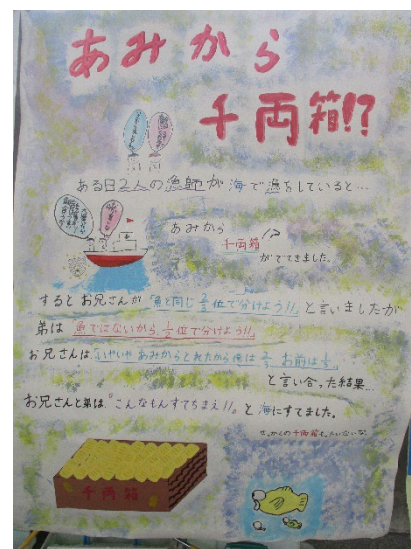 あみから
千両箱!?
ある日2人の漁師が海で漁をしていると…
あみから
千両箱!?
がでてきました。
するとお兄さんが「魚と同じ2/3位で分けよう!!」と言いましたが
弟は「魚ではないから、1/2位で分けよう!!」
お兄さんは「いやいやあみからとれたから俺は2/3お前は1/3」
と言い合った結果…
お兄さんと弟は、"こんなもんすてちまえ!!"と海にすてました。
せっかくの千両箱も、もったいないな
千両箱